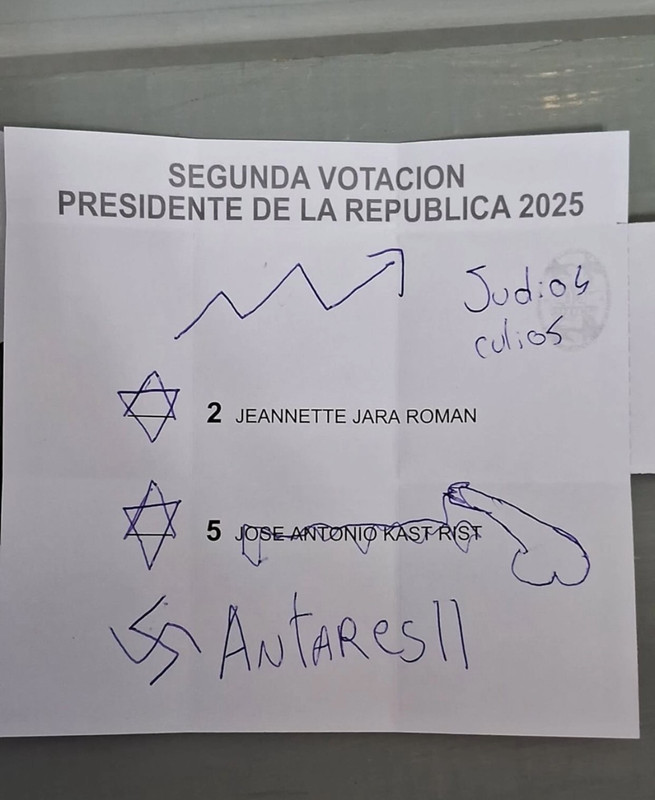 SEGUNDA VOTACION
PRESIDENTE DE LA REPUBLICA 2025
Judios
culios
2 JEANNETTE JARA ROMAN
5 JOSE ANTONIO KAST RIST
ANTARES II